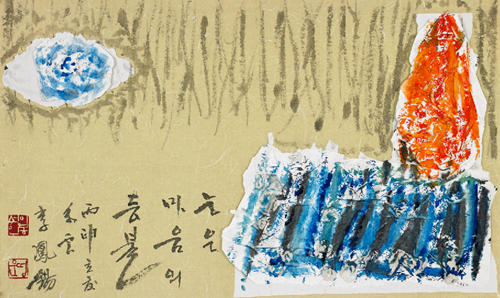 눈은
마음의
등불
丙申立夏
李鳳錫